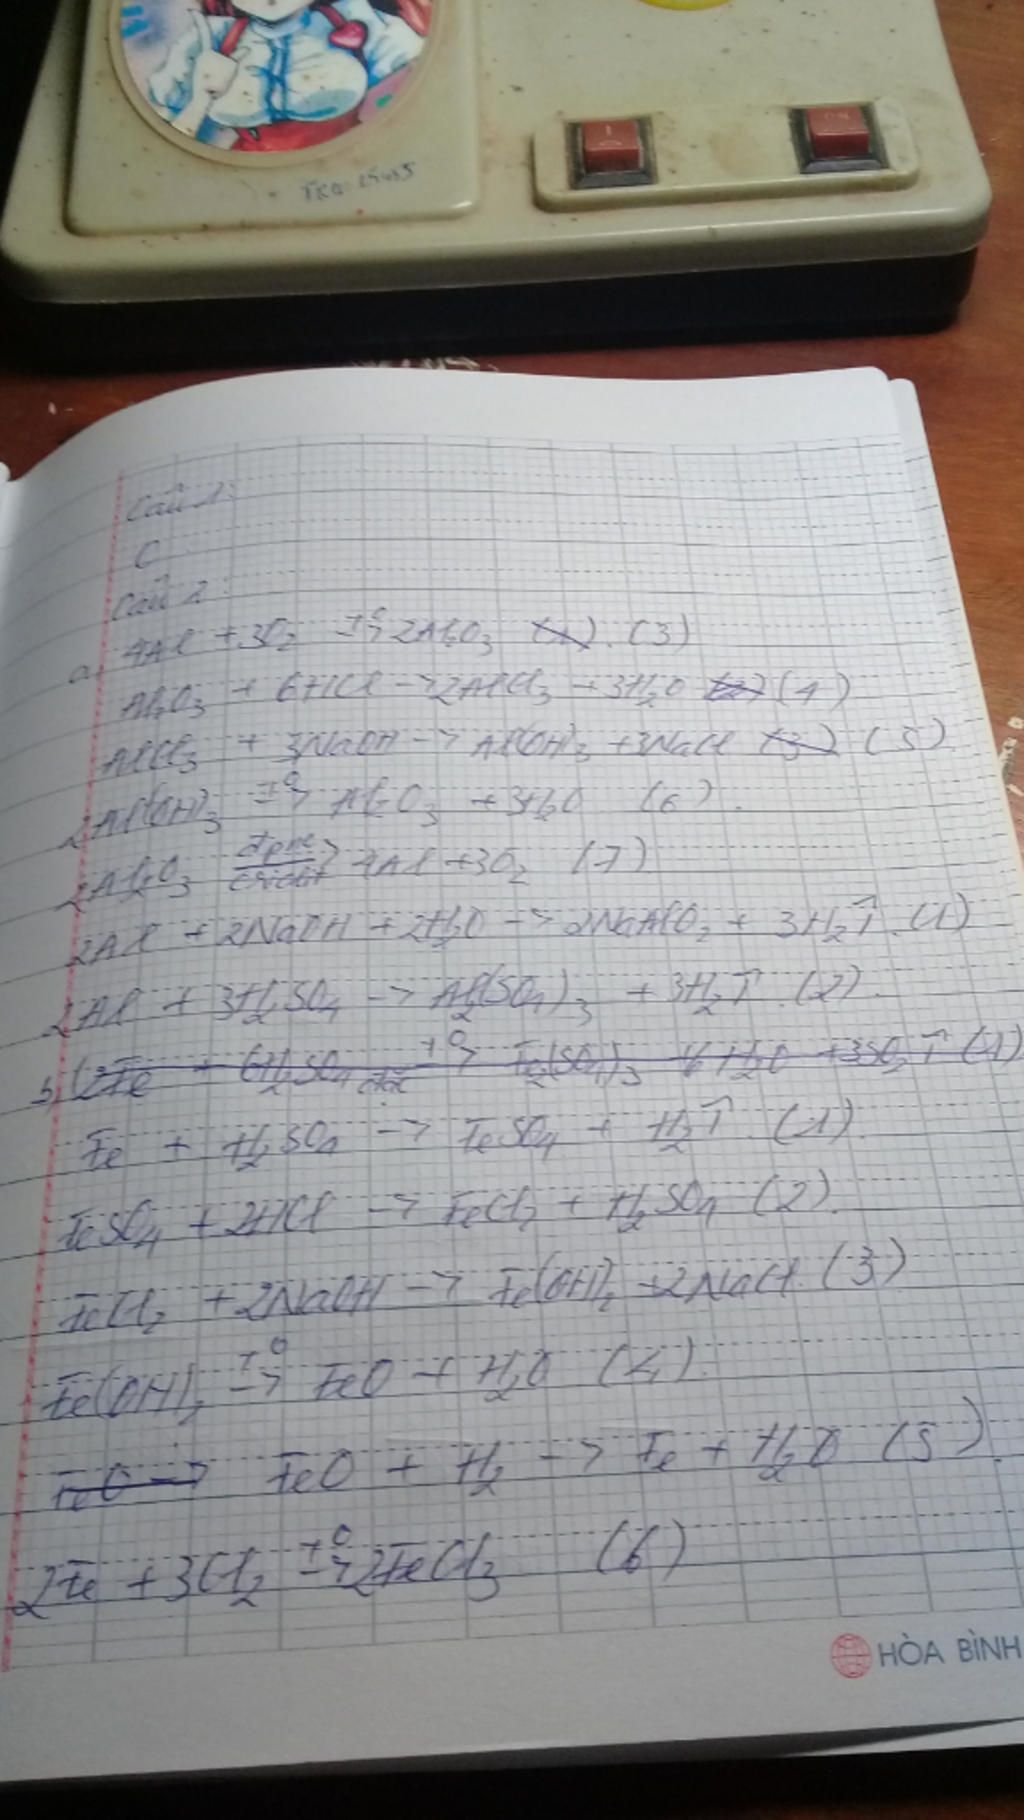 Câu 1:
C
Câu 2:
a, 4Al + 3O2 t°→ 2Al2O3 (3)
Al2O3 + 6HCl → 2AlCl3 + 3H2O (4)
AlCl3 + 3NaOH → Al(OH)3 + 3NaCl (3) (5)
2Al(OH)3 t°→ Al2O3 + 3H2O (6)
2Al2O3 đpnc criolit → 4Al + 3O2 (7)
2Al + 2NaOH + 2H2O → 2NaAlO2 + 3H2↑ (1)
2Al + 3H2SO4 → Al2(SO4)3 + 3H2↑ (2)
b, (2Fe + 6H2SO4 đặc t°→ Fe2(SO4)3 6H2O + 3SO2↑ (1)
Fe + H2SO4 → FeSO4 + H2↑ (1)
FeSO4 + 2HCl → FeCl2 + H2SO4 (2)
FeCl2 + 2NaOH → Fe(OH)2 + 2NaCl (3)
Fe(OH)2 t°→ FeO + H2O (4)
FeO → FeO + H2 → Fe + H2O (5)
2Fe + 3Cl2 t°→ 2FeCl3 (6)
HÒA BÌNH